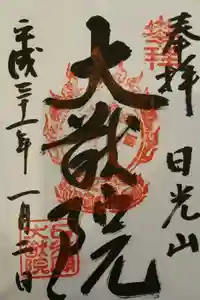 奉拝
日光山
大猷院
平成三十一年一月二日
大猷院